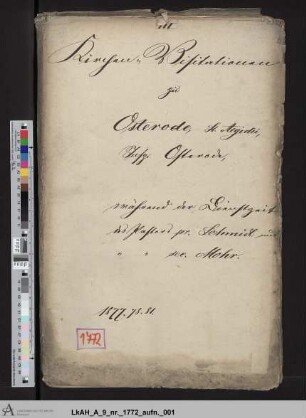 Kirchen-Visitationen
zu
Osterode, St. Aegidii,
Insp. Osterode,
während der Dienstzeit
des Pastors pr. Schmidt und
" " sec. Mohr.
1877. 78. 81.
1772
LkAH_A_9_nr._1772_aufn._001